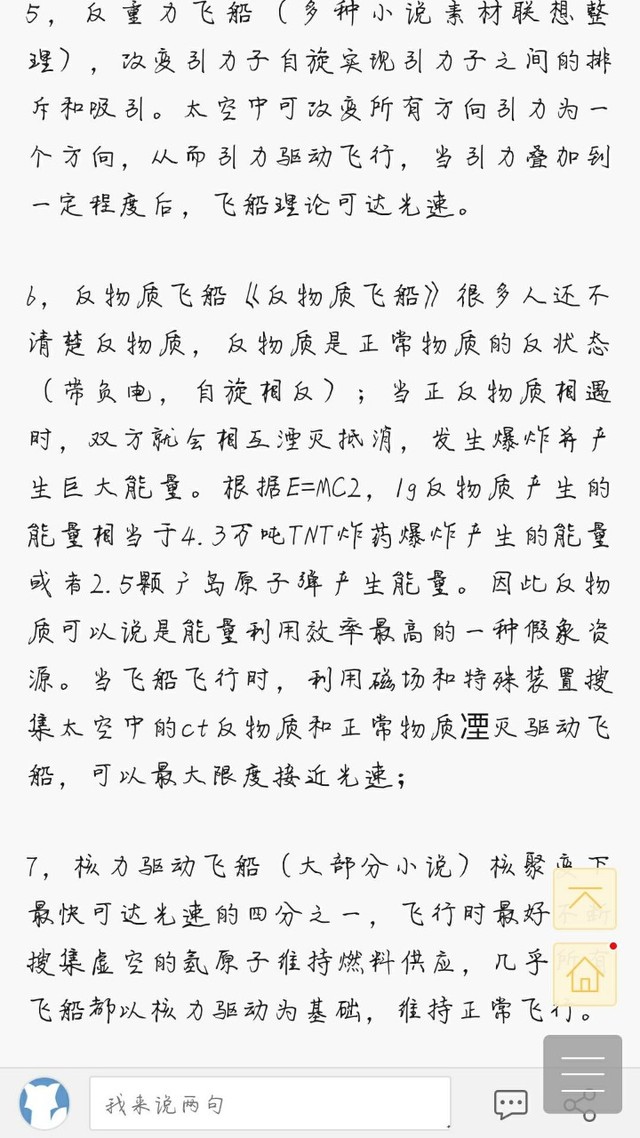 5，反重力飞船（多种小说素材联想整
理），改变引力子自旋实现引力子之间的排
斥和吸引。太空中可改变所有方向引力为一
个方向，从而引力驱动飞行，当引力叠加到
一定程度后，飞船理论可达光速。
6，反物质飞船《反物质飞船》很多人还不
清楚反物质，反物质是正常物质的反状态
（带负电，自旋相反）；当正反物质相遇
时，双方就会相互湮灭抵消，发生爆炸并产
生巨大能量。根据E=MC2，1g反物质产生的
能量相当于4.3万吨TNT炸药爆炸产生的能量
或者2.5颗广岛原子弹产生能量。因此反物
质可以说是能量利用效率最高的一种假象资
源。当飞船飞行时，利用磁场和特殊装置搜
集太空中的ct反物质和正常物质湮灭驱动飞
船，可以最大限度接近光速；
7，核力驱动飞船（大部分小说）核聚变下
最快可达光速的四分之一，飞行时最好不断
搜集虚空的氢原子维持燃料供应，几乎所有
飞船都以核力驱动为基础，维持正常飞行。
我来说两句